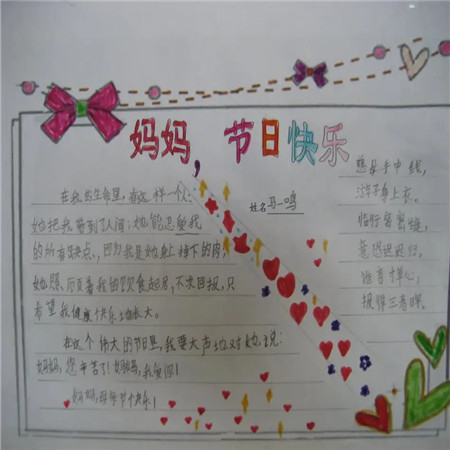 妈妈，节日快乐
姓名 马一鸣
在我的生命里，有这样一个人：
她把我带到了人间；她能忍受我
的所有缺点，因为我是她身上掉下的肉；
她照顾着我的饮食起居，不求回报，只
希望我健康快乐地长大。
在这个伟大的节日里，我要大声地对她说：
妈妈，您辛苦了！妈妈，我爱你！
妈妈，母亲节快乐！
慈母手中线，
游子身上衣。
临行密密缝，
意恐迟迟归。
谁言寸草心，
报得三春晖。